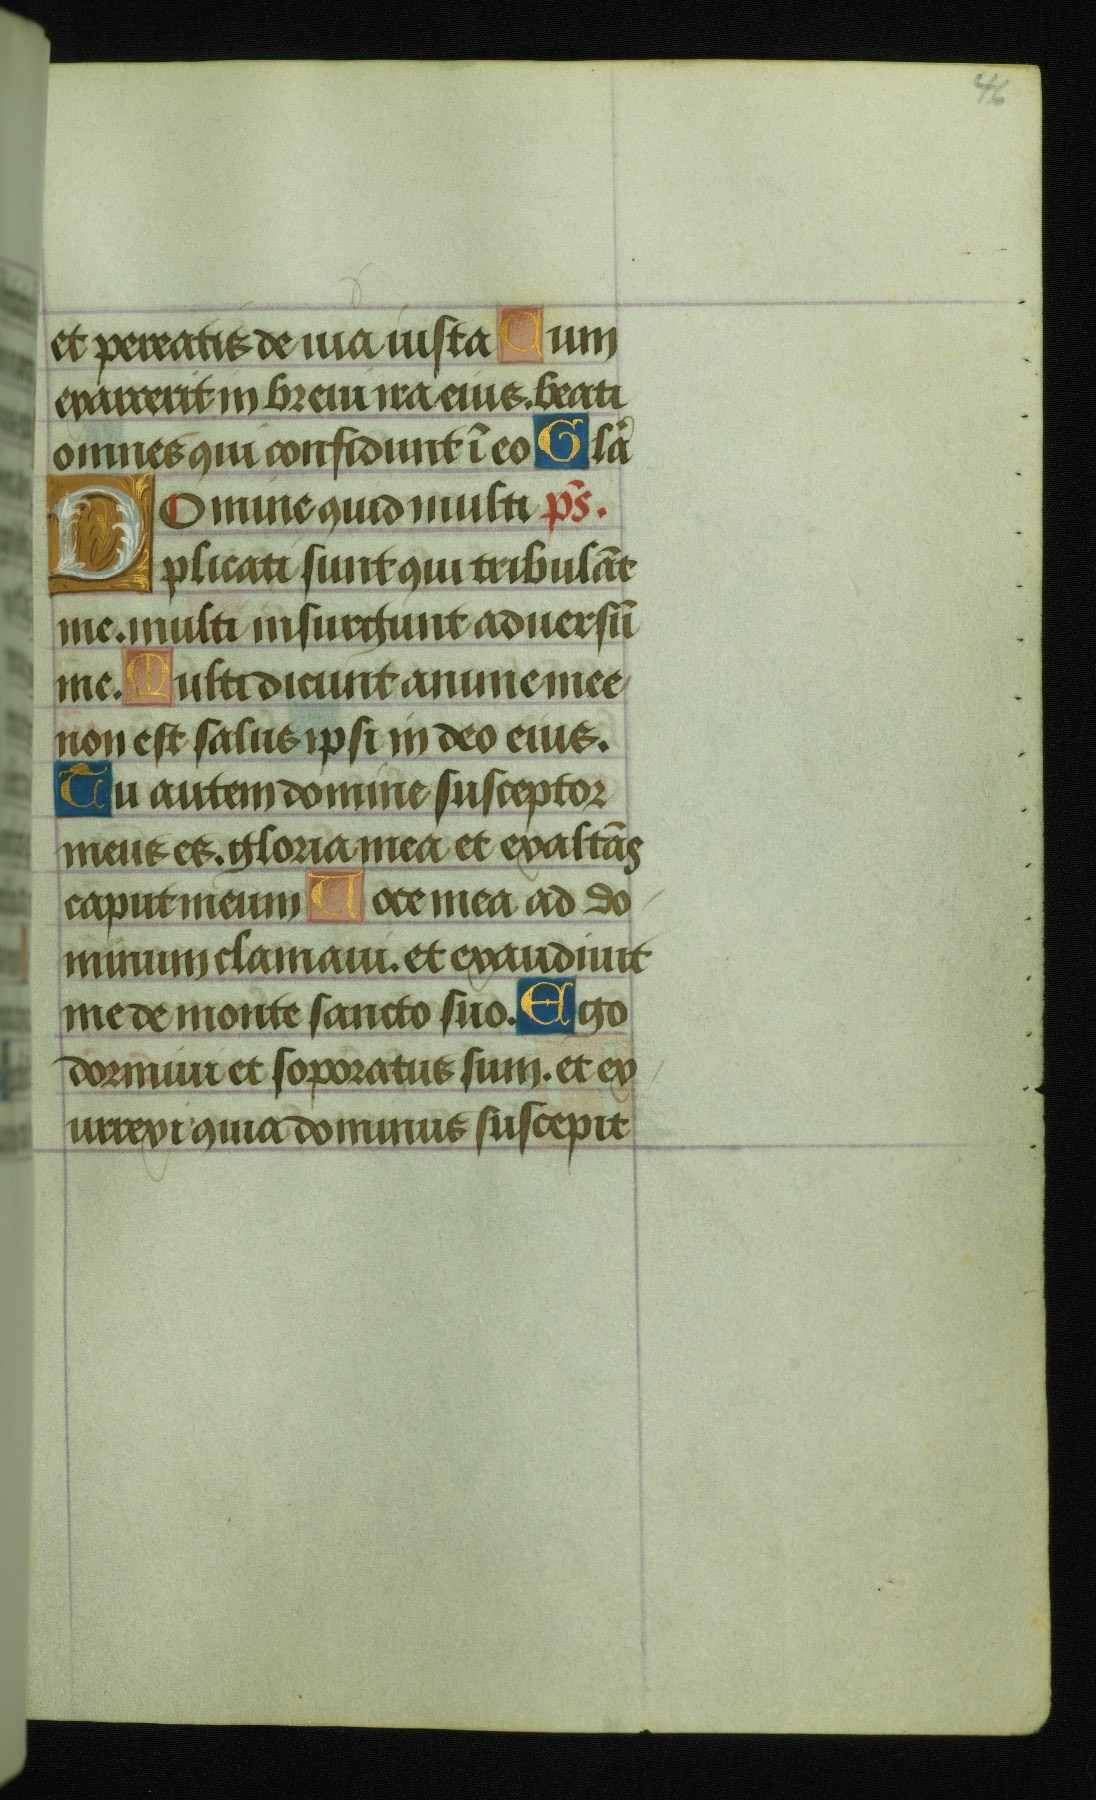 46
et pereatis de uia iusta Cum
exarxerit in breui ira eius. beati
omnes qui confidunt ī eo Glā
Domine quid multi p̄s.
plicati sunt qui tribulāt
me. multi insurgunt aduersū
me. Multi dicunt anime mee
non est salus ipsi in deo eius.
Tu autem domine susceptor
meus es. gloria mea et exaltās
caput meum Uoce mea ad do
minum clamaui. et exaudiuit
me de monte sancto suo. Ego
dormiui et soporatus sum. et ex
urrexi quia dominus suscepit